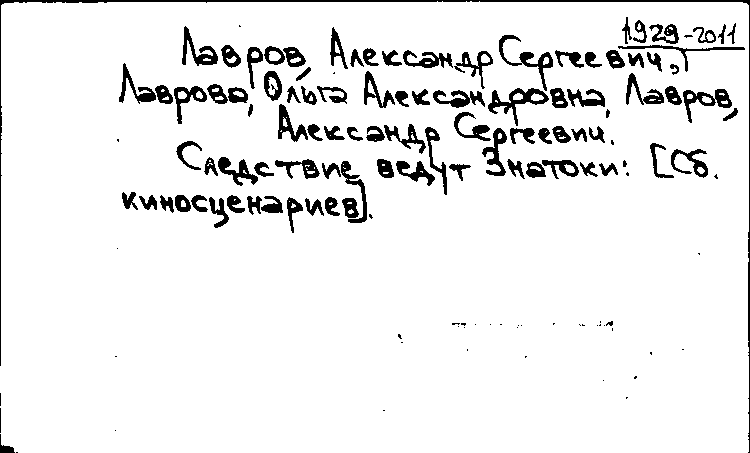 1929-2011
Лавров, Александр Сергеевич,
Лаврова, Ольга Александровна, Лавров,
Александр Сергеевич.
Следствие ведут Знатоки: [Сб.
киносценариев].